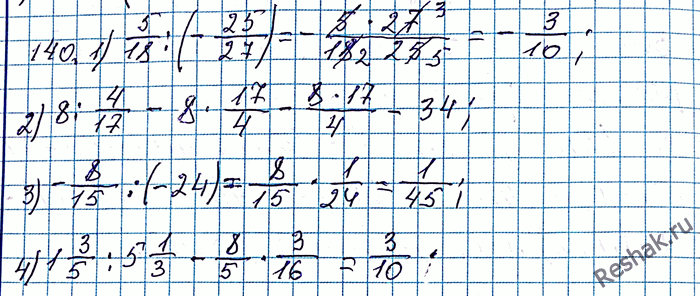 140. 1) 5/18 : (- 25/27) = - 5 · 27 3 / 18 2 25 5 = - 3/10 ;
2) 8 : 4/17 - 8 · 17/4 - 8 · 17/4 - 34 ;
3) - 8/15 : (-24) = 8/15 · 1/24 = 1/45 ;
4) 1 3/5 : 5 1/3 - 8/5 · 3/16 = 3/10 ;
Reshak.ru